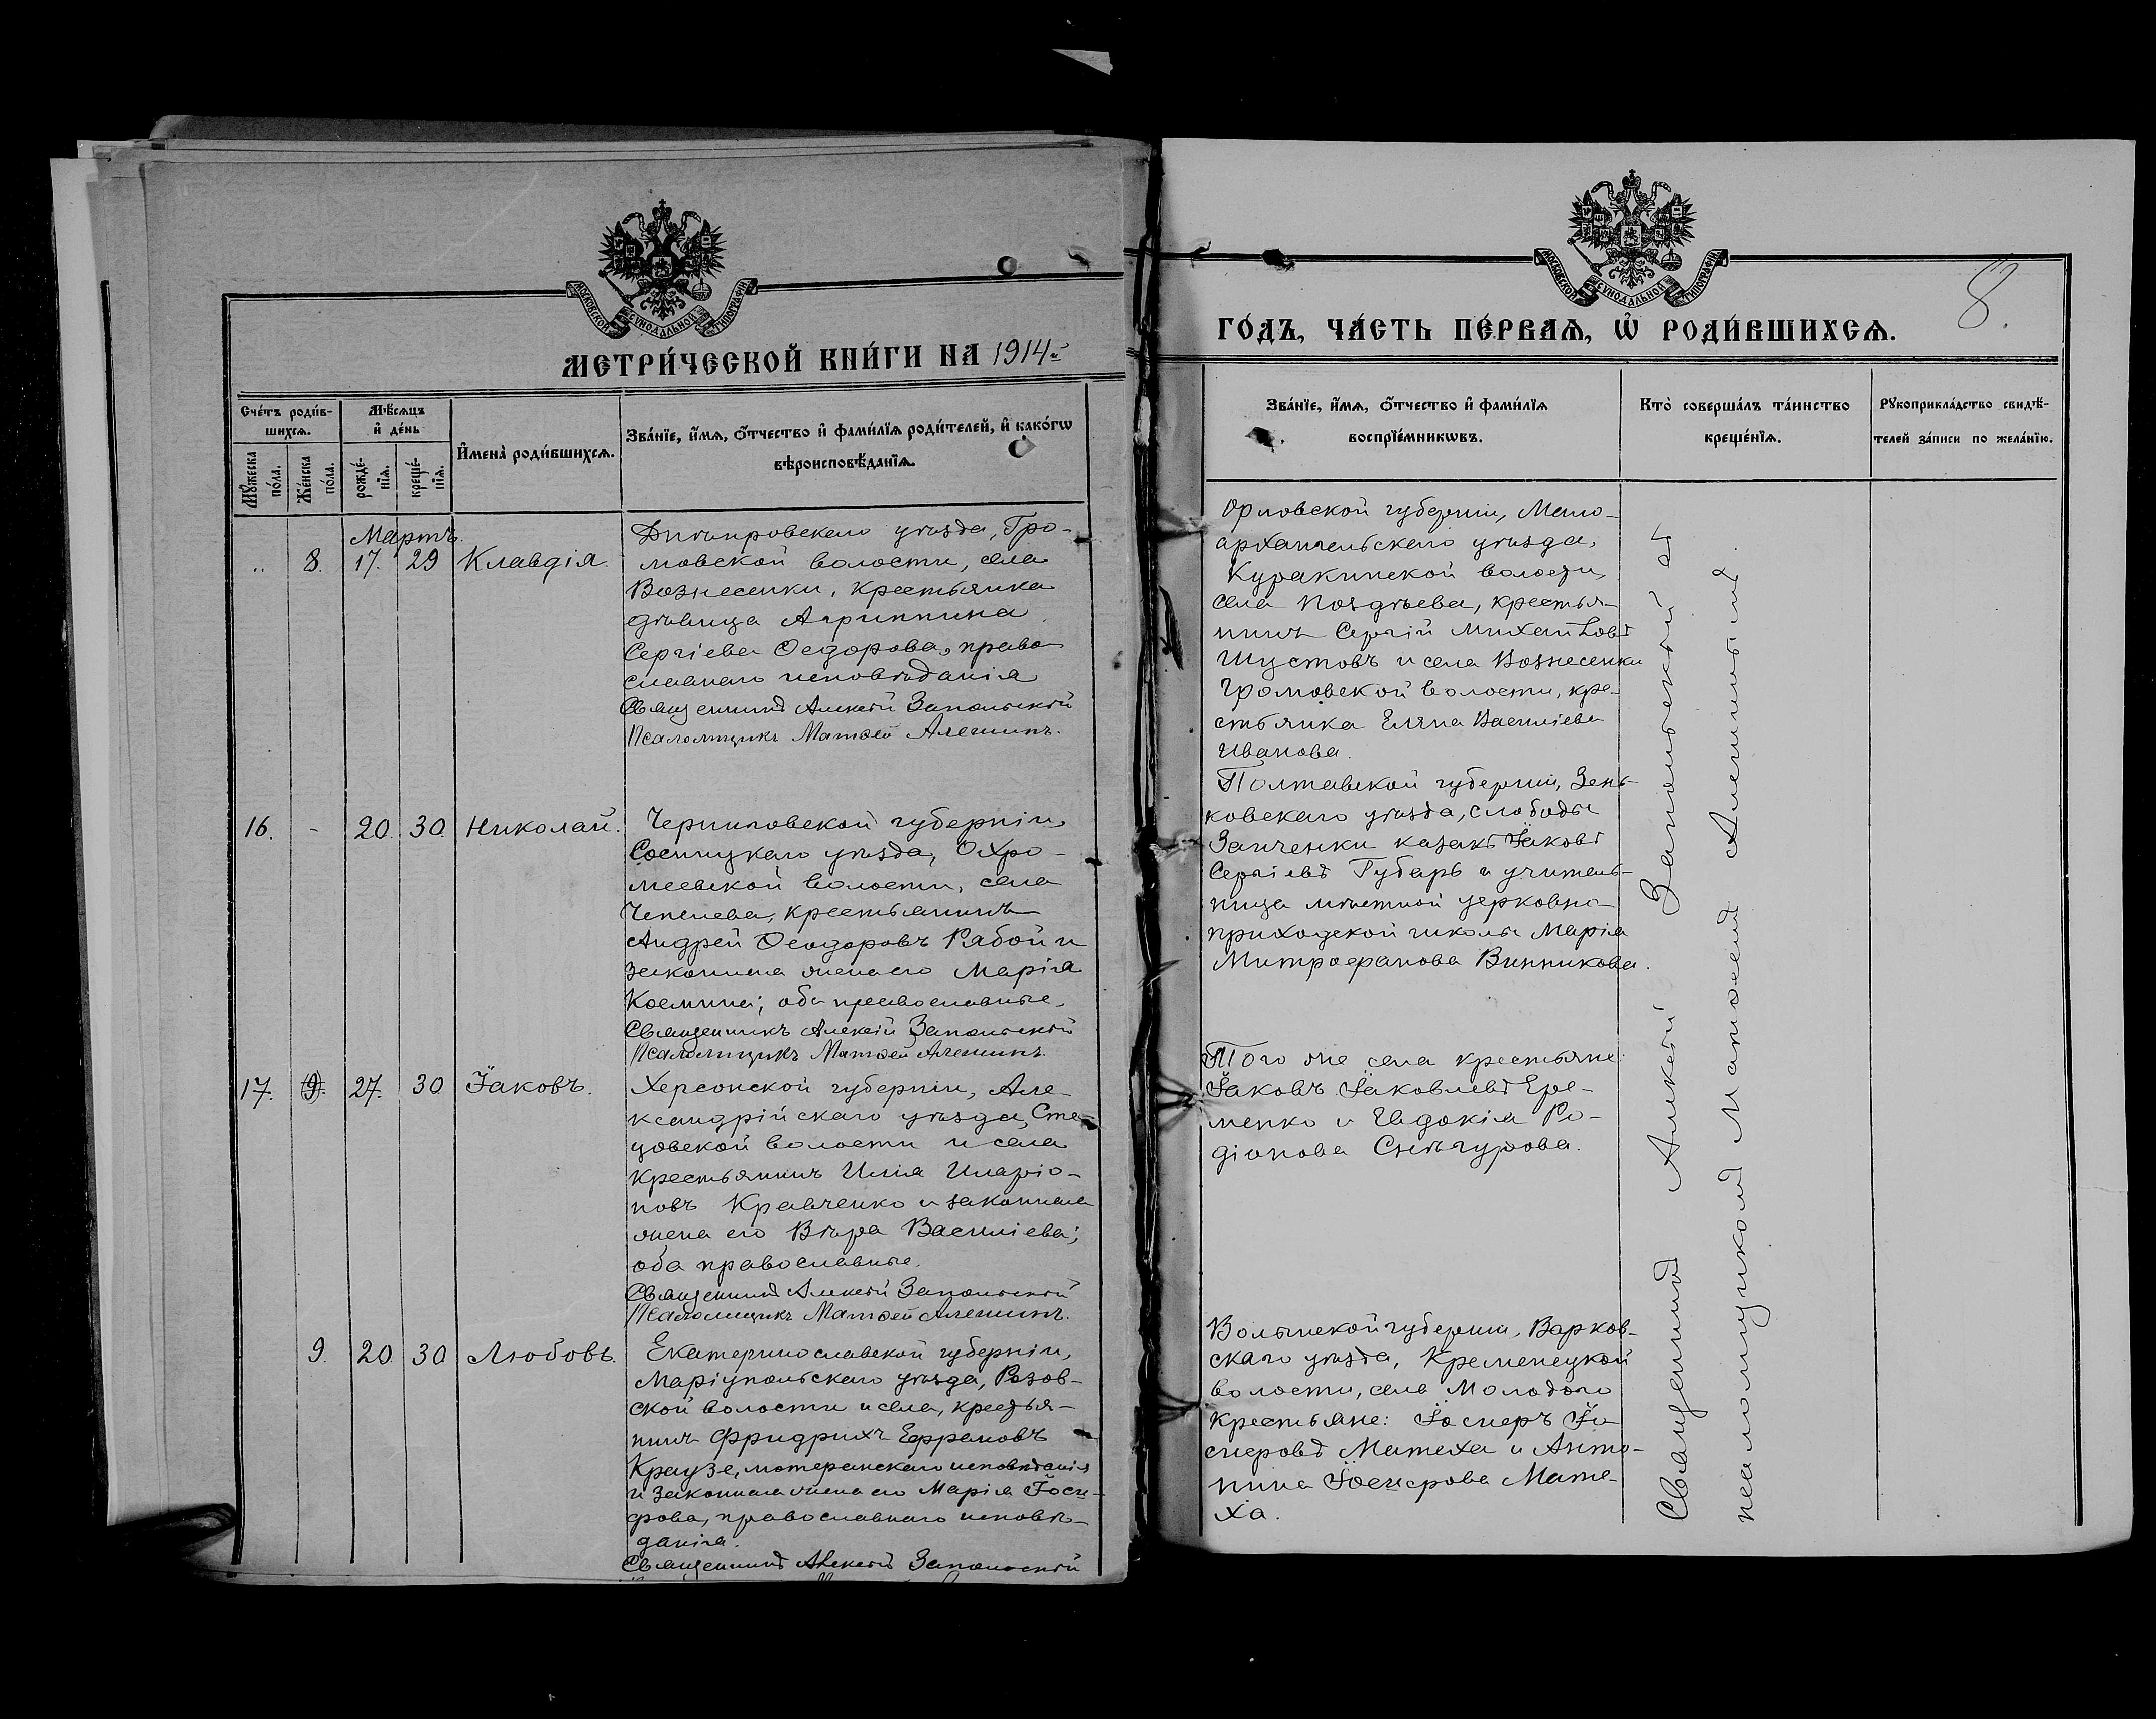 МОСКОВСКОЙ СѴНОДАЛЬНОЙ ТИПОГРАФІИ
МЕТРИ́ЧЕСКОЙ КНИ́ГИ НА 1914й
Сче́тъ роди́в-
шихсѧ.
Мѣ́сѧцъ
и҆ де́нь
Мꙋ́жеска
по́ла.
Же́нска
по́ла.
рожде́-
нїѧ.
креще́-
нїѧ.
И҆мена̀ роди́вшихсѧ.
Зва́нїе, и҆́мѧ, ѻ҆́тчество и҆ фами́лїѧ роди́телей, и҆ како́гѡ
вѣроисповѣ́данїѧ.
Мартъ.
„ 8. 17. 29 Клавдія.
Днѣпровскаго уѣзда, Гро-
мовской волости, села
Вознесенки, крестьянка
дѣвица Агриппина
Сергіева Ѳедорова, право
славнаго исповѣданія
Священникъ Алексѣй Запольскій
Псаломщикъ Матѳей Алешинъ.
16. - 20. 30. Николай.
Черниговской губерніи
Сосницкаго уѣзда, Охро-
меевской волости, села
Чепелева, крестьянинъ
Андрей Ѳеодоровъ Рябой и
законная жена его Марія
Космина; оба православные.
Священникъ Алексій Запольскій
Псаломщикъ Матѳей Алешинъ.
17. 9. 27. 30 Іаковъ.
Херсонской губерніи, Але-
ксандрійскаго уѣзда, Сте-
цовской волости и села
крестьянинъ Илія Иларіо-
новъ Кравченко и законная
жена его Вѣра Василіева;
оба православные.
Священникъ Алексѣй Запольскій
Псаломщикъ Матѳей Алешинъ.
9. 20. 30 Любовь.
Екатеринославской губерніи,
Маріупольскаго уѣзда, Розов-
ской волости и села, крестья-
нинъ Фридрихъ Ефремовъ
Краузе, лютеранскаго исповѣданія
и законная жена его Марія Іоси-
фова, православнаго исповѣ-
данія.
Священникъ Алексѣй Запольскій
МОСКОВСКОЙ СѴНОДАЛЬНОЙ ТИПОГРАФІИ
8.
ГО́ДЪ, ЧА́СТЬ ПЕ́РВАѦ, Ѡ҆ РОДИ́ВШИХСѦ.
Зва́нїе, и҆́мѧ, ѻ҆́тчество и҆ фами́лїѧ
воспрїе́мникѡвъ.
Кто̀ соверша́лъ та́инство
креще́нїѧ.
Рꙋкоприкла́дство свидѣ́-
телей за́писи по жела́нїю.
Орловской губерніи, Мало-
архангельскаго уѣзда,
Куракинской волости,
села Поздѣева, крестья-
нинъ Сергій Михаиловъ
Шустовъ и села Вознесенки
Громовской волости, кре-
стьянка Елена Василіева
Иванова.
Полтавской губерніи, Зень-
ковскаго уѣзда, слободы
Заиченки казакъ Іаковъ
Сергіевъ Губарь и учитель-
ница мѣстной церковно-
приходской школы Марія
Митрофанова Винникова.
Того же села крестьяне:
Іаковъ Іаковлевъ Ере-
менко и Евдокія Ро-
діонова Снѣгурова.
Волынской губерніи, Варков-
скаго уѣзда, Кременецкой
волости, села Молодого
крестьяне: Іосифъ Іо
сифовъ Матеха и Анто-
нина Іосифова Мате-
ха.
Священникъ Алексѣй Запольскій съ
псаломщикомъ Матѳеемъ Алешинымъ.